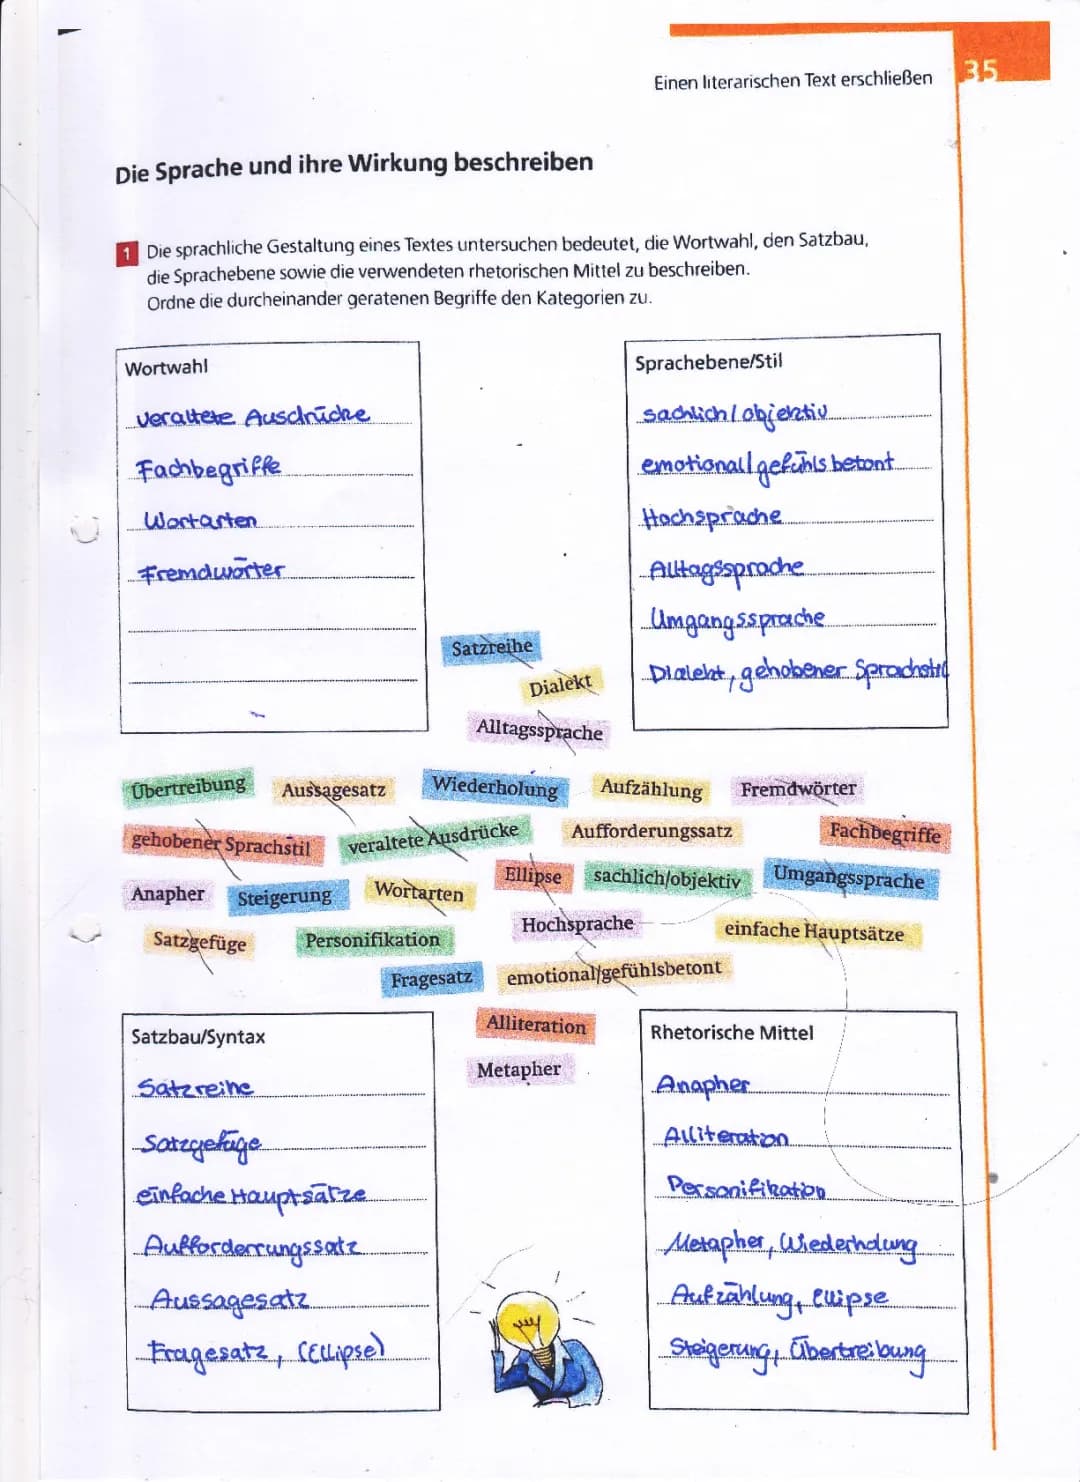 Einen literarischen Text erschließen
35
Die Sprache und ihre Wirkung beschreiben
1 Die sprachliche Gestaltung eines Textes untersuchen bedeutet, die Wortwahl, den Satzbau,
die Sprachebene sowie die verwendeten rhetorischen Mittel zu beschreiben.
Ordne die durcheinander geratenen Begriffe den Kategorien zu.
Wortwahl
veraltete Ausdrücke
Fachbegriffe
Wortarten
Fremdwörter
Sprachebene/Stil
sachlich/objektiv
emotional/gefühlsbetont
Hochsprache
Alltagssprache
Umgangssprache
Dialekt, gehobener Sprachstil
Satzreihe
Dialekt
Alltagssprache
Übertreibung Aussagesatz Wiederholung Aufzählung Fremdwörter
gehobener Sprachstil veraltete Ausdrücke Aufforderungssatz Fachbegriffe
Anapher Steigerung Wortarten Ellipse sachlich/objektiv Umgangssprache
Satzgefüge Personifikation Hochsprache einfache Hauptsätze
Fragesatz emotional/gefühlsbetont
Alliteration
Metapher
Satzbau/Syntax
Satzreihe
Satzgefüge
einfache Hauptsätze
Aufforderrungssatz
Aussagesatz
Fragesatz, (Ellipse)
Rhetorische Mittel
Anapher
Alliteration
Personifikation
Metapher, Wiederholung
Aufzählung, Ellipse
Steigerung, Übertreibung